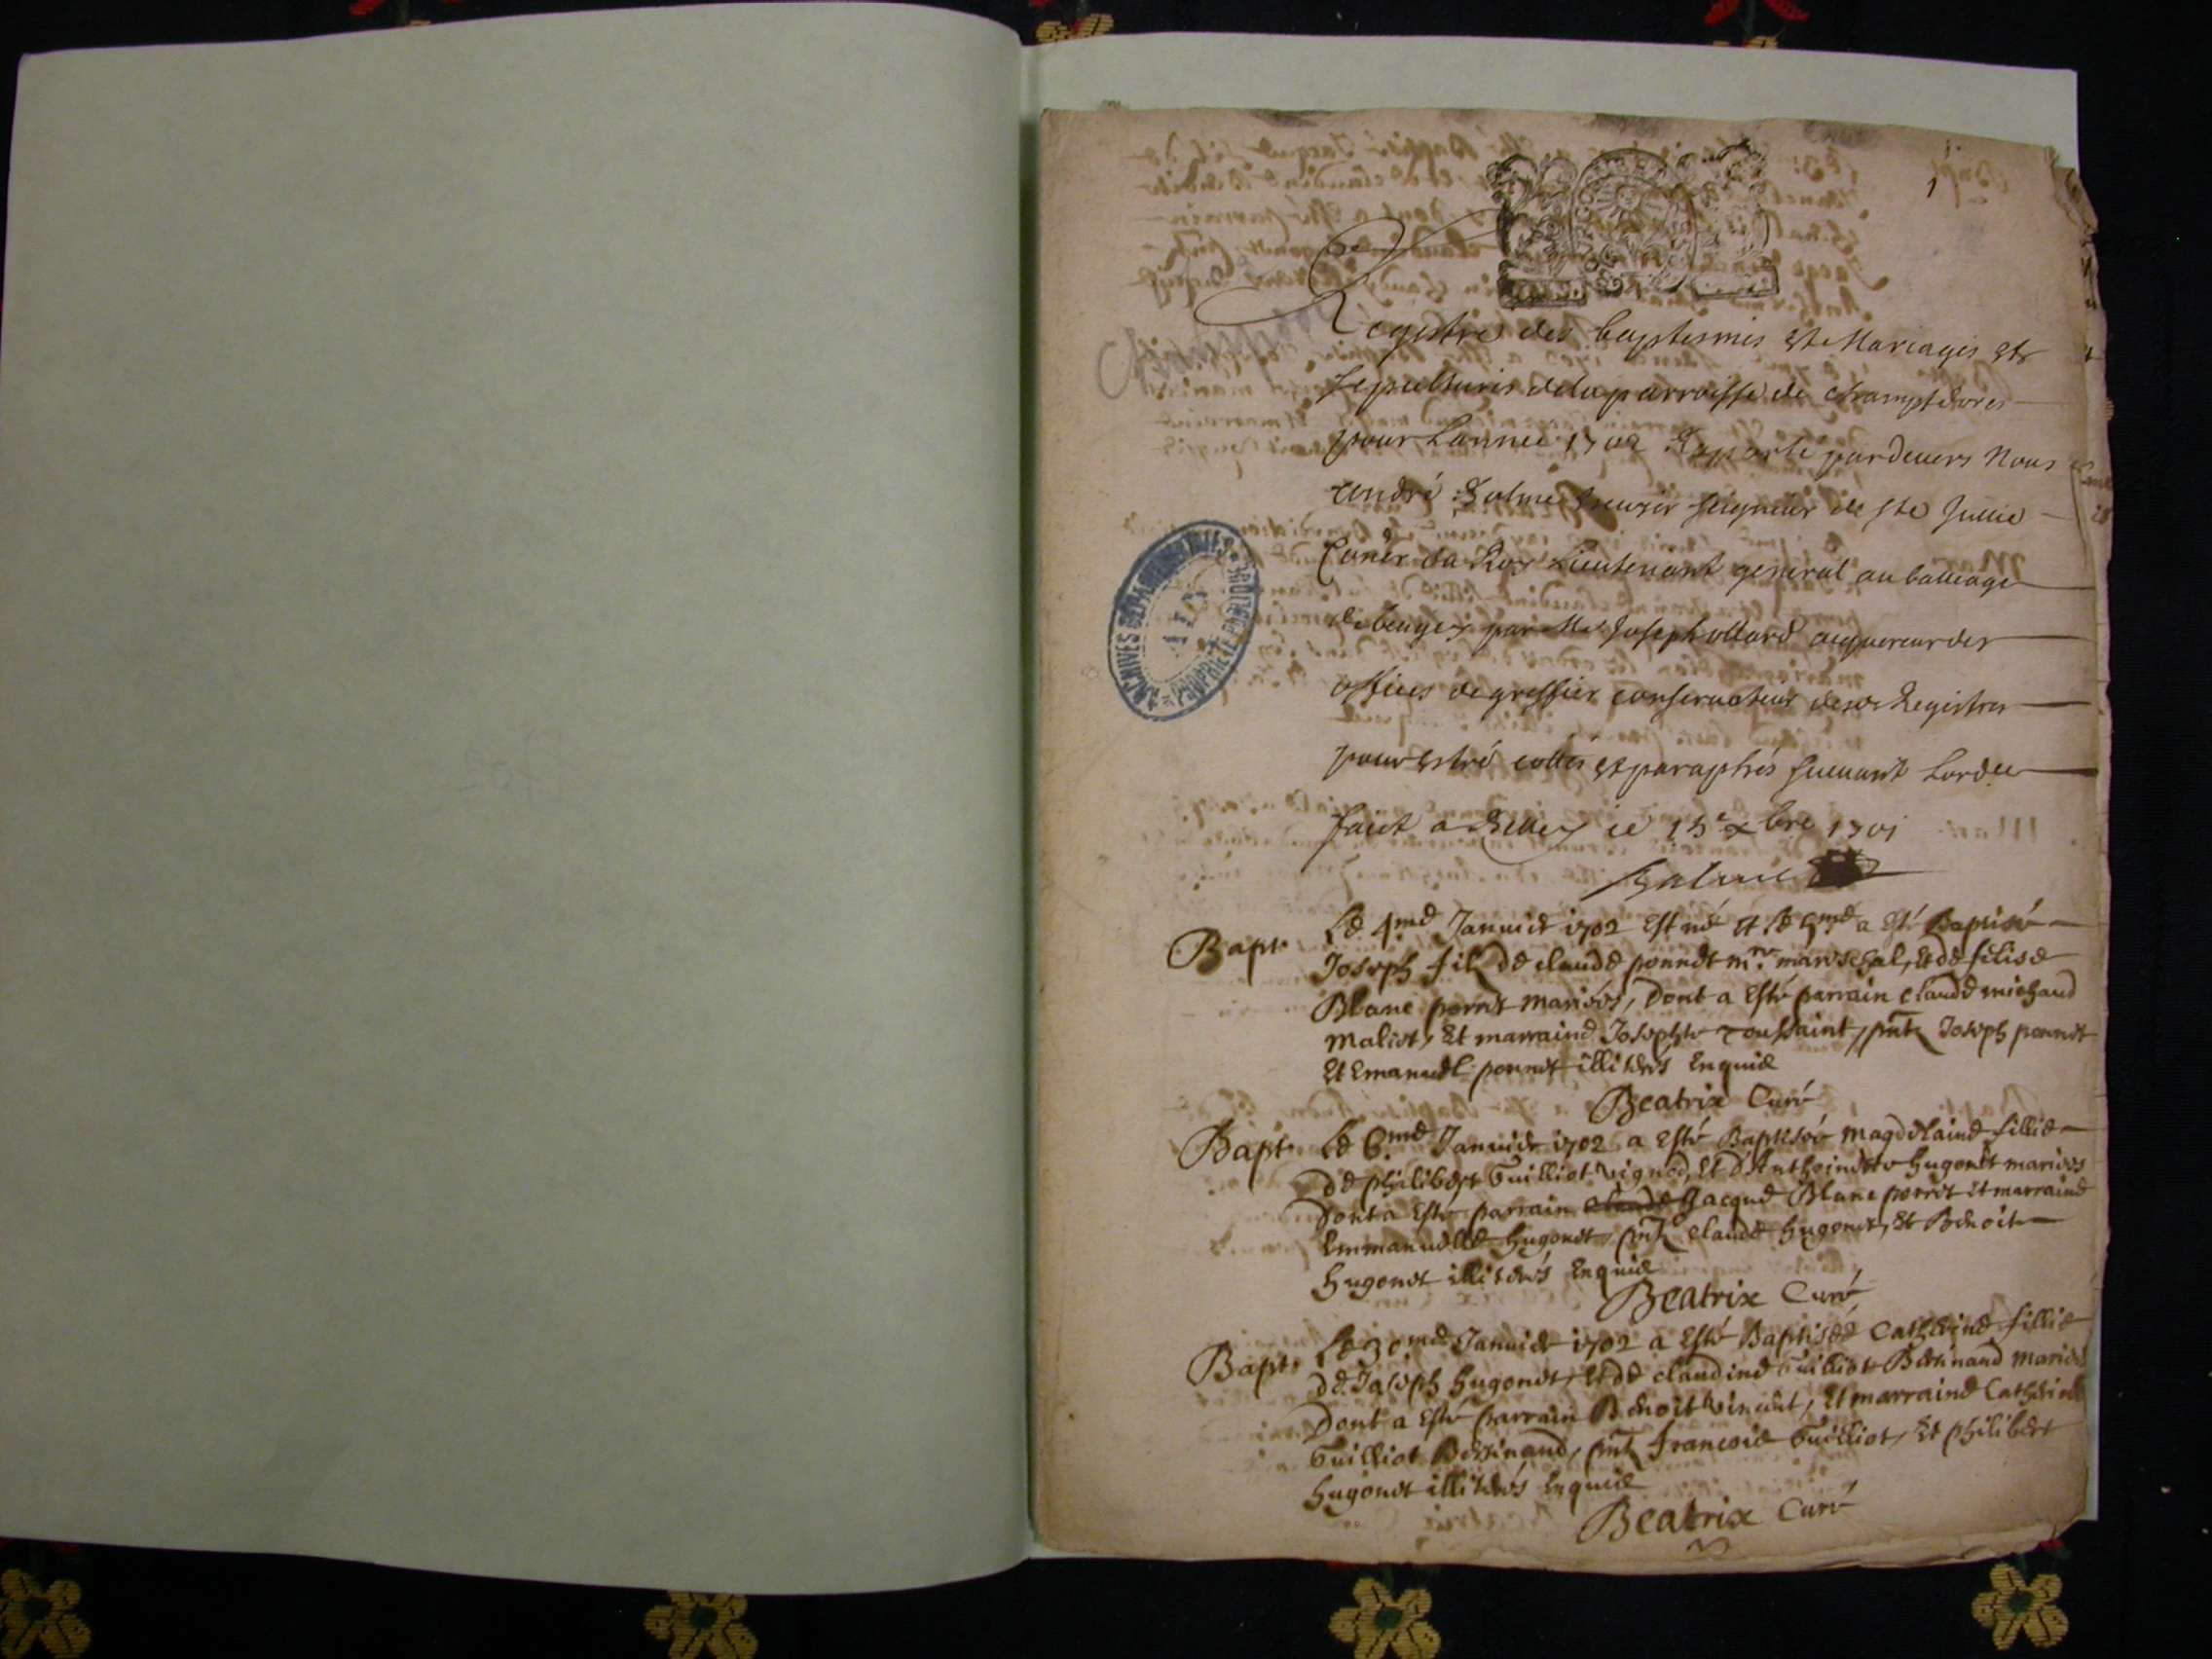 1
Registre des baptesmes Et Mariages Et
sepultures de la parroisse de Champdore
pour Lannee 1702 Raporte pardeuers Nous
André Balme Escuyer seigneur de Ste Jullie
Coner du Roy Lieutenant general au balliage
de beugey par Me Joseph ollard acquereur des
offices de greffier conseruateur de ses Registres
pour Estre cottés Et paraphés suiuant Lordce
faict a Belley ce 15e xbre 1701
Balme
Bapt.
Le 4me Januier 1702 Est né et le 5me a esté Baptisé
Joseph fils de claude ponnet mre mareschal, et de felise
Blanc perret mariés, Dont a esté parrain claude michaud
maliet, Et marraine Josephte Toussaint, pnts Joseph ponnet
Et Emanuel ponnet illiterés Enquis
Beatrix Curé
Bapt.
Le 6.me Januier 1702 a esté Baptisée magdelaine fillie
de philibert Guilliot vignod, Et D'Anthoinette hugonet mariés
Dont a esté parrain claude Jacque Blanc perret Et marraine
Emmanuelle hugonet, pnts claude hugonet, Et Benoit
hugonet illiterés Enquis
Beatrix Curé
Bapt.
Le 30me Januier 1702 a esté Baptisée Catherine fillie
de Joseph hugonet, Et de claudine Guilliot Bertinand mariés
Dont a esté parrain Benoit vincent, Et marraine Catherine
Guilliot Bertinand, pnts francois Guilliot, Et philibert
hugonet illiterés Enquis
Beatrix Curé
ARCHIVES DEPARTEMENTALES
AIN
PROPRIETE PUBLIQUE